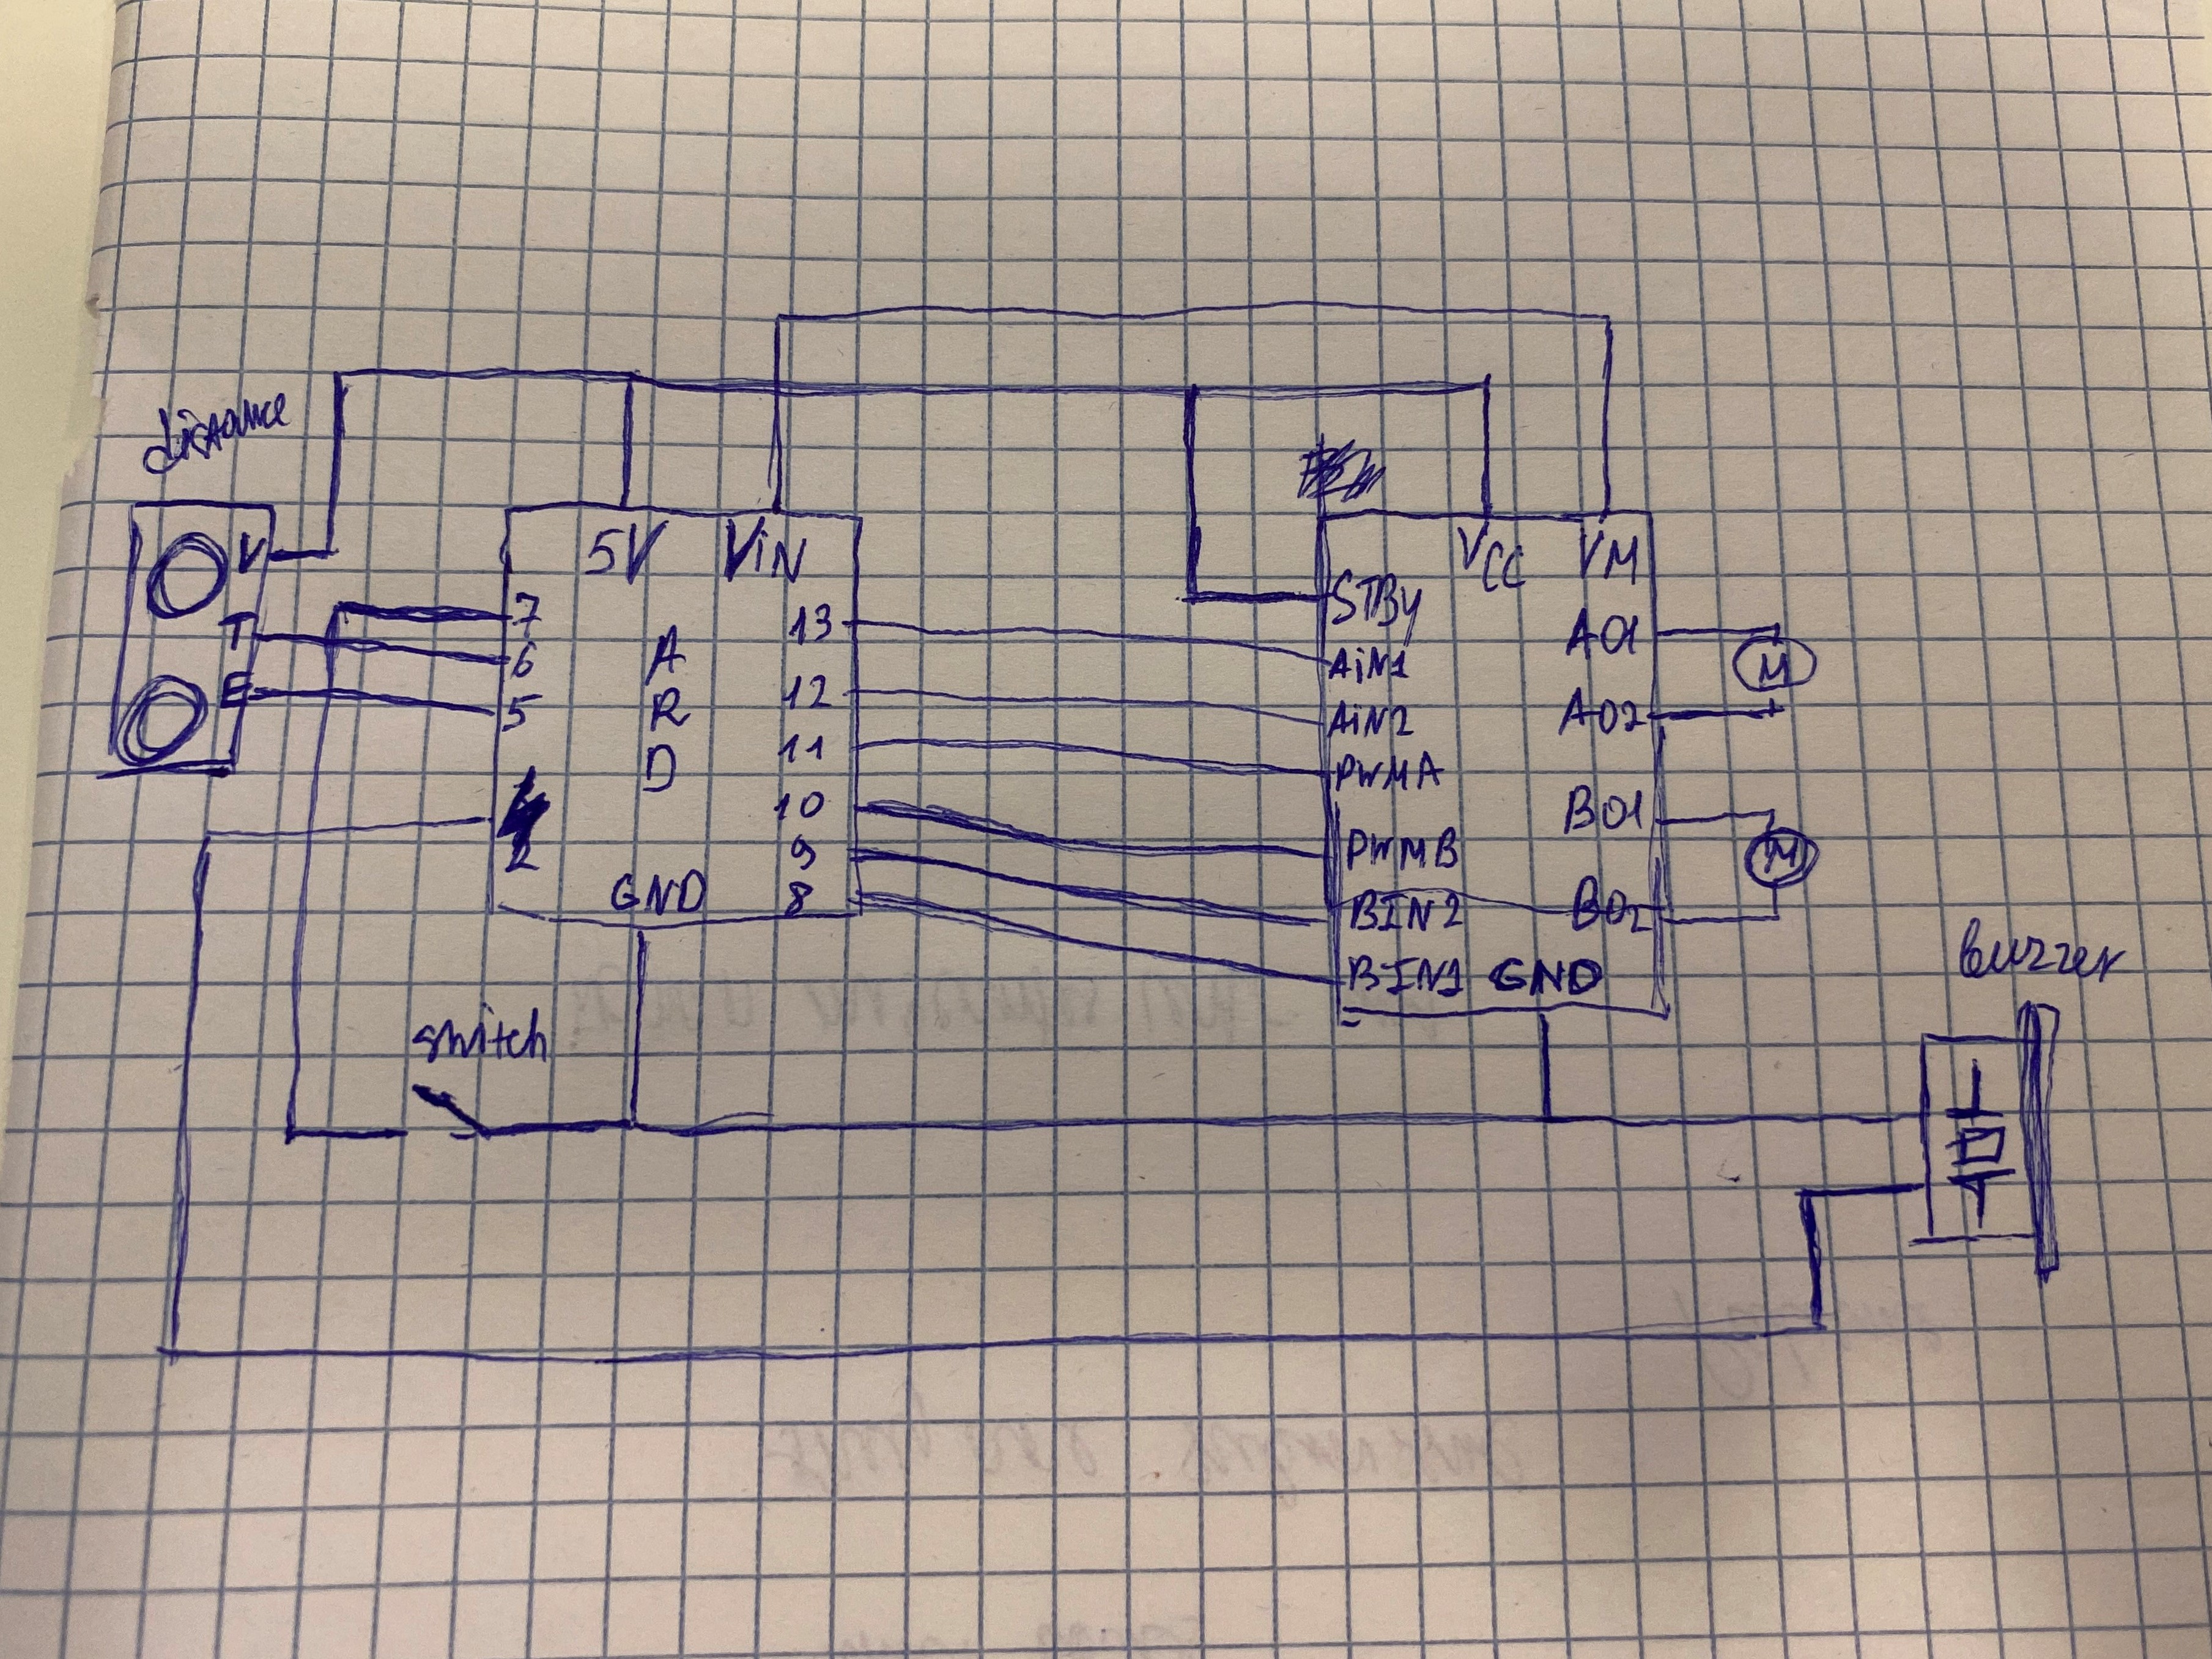 distance
V
T
E
5V ViN
7
6
5
2
A
R
D
13
12
11
10
9
8
GND
VCC VM
STBY
AiN1
AiN2
PWMA
PWMB
BIN2
BIN1
GND
A01
A02
B01
B02
M
M
switch
buzzer